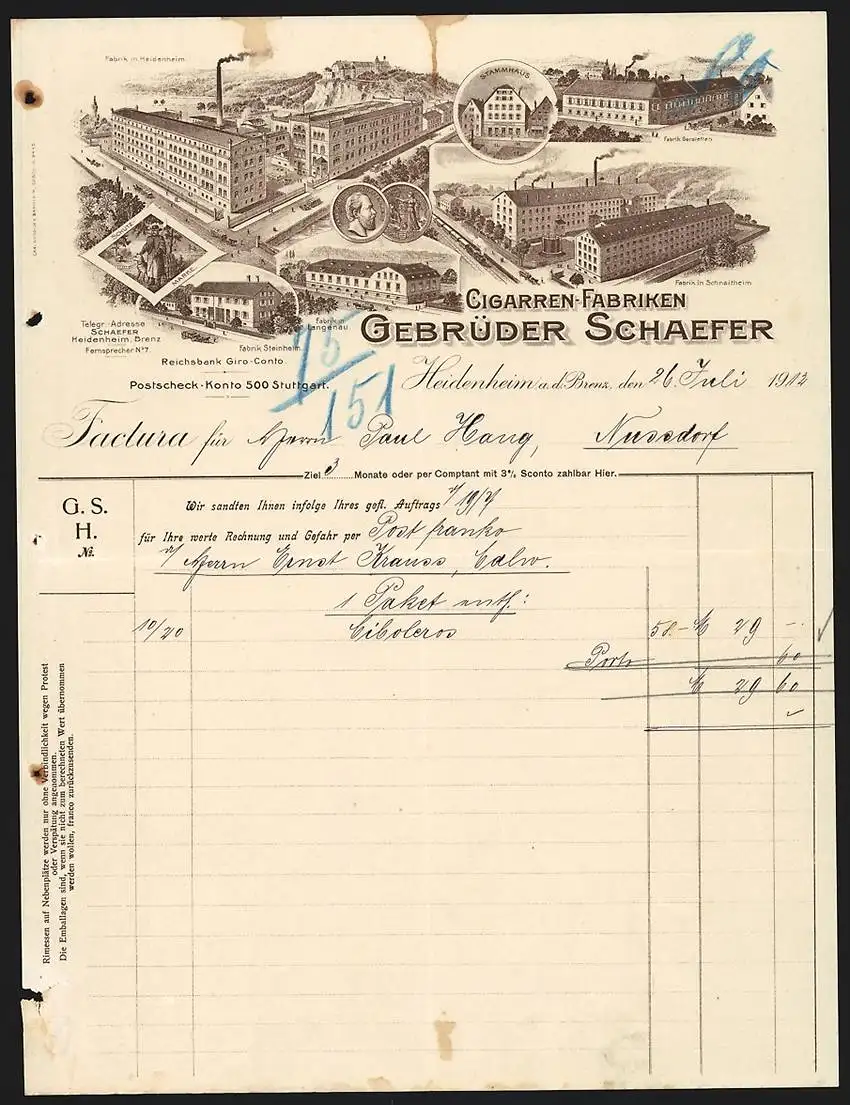 Fabrik in Heidenheim.
STAMMHAUS
Fabrik Gerstetten
SCHUTZ
MARKE.
Fabrik in Schnaitheim
Fabrik in
Langenau
Fabrik Steinheim.
CIGARREN-FABRIKEN
GEBRÜDER SCHAEFER
Telegr. Adresse
SCHAEFER
Heidenheim, Brenz
Fernsprecher No 7.
Reichsbank Giro-Conto.
Postscheck-Konto 500 Stuttgart.
75/151
Heidenheim, a. d. Brenz, den 26. Juli 1912
Factura für Herrn Paul Haug, Nussdorf
Ziel 3 Monate oder per Comptant mit 3% Sconto zahlbar Hier.
G. S.
H.
No.
Wir sandten Ihnen infolge Ihres gefl. Auftrags v/ 19/7
für Ihre werte Rechnung und Gefahr per Post franko
v/ Herrn Ernst Krauss, Calw.
1 Paket enth.:
10/20 Ciboleros 58.- M 29 -.
Porto 60
M 29 60
Rimessen auf Nebenplätze werden nur ohne Verbindlichkeit wegen Protest
oder Verspätung angenommen.
Die Emballagen sind, wenn sie nicht zum berechneten Wert übernommen
werden wollen, franco zurückzusenden.